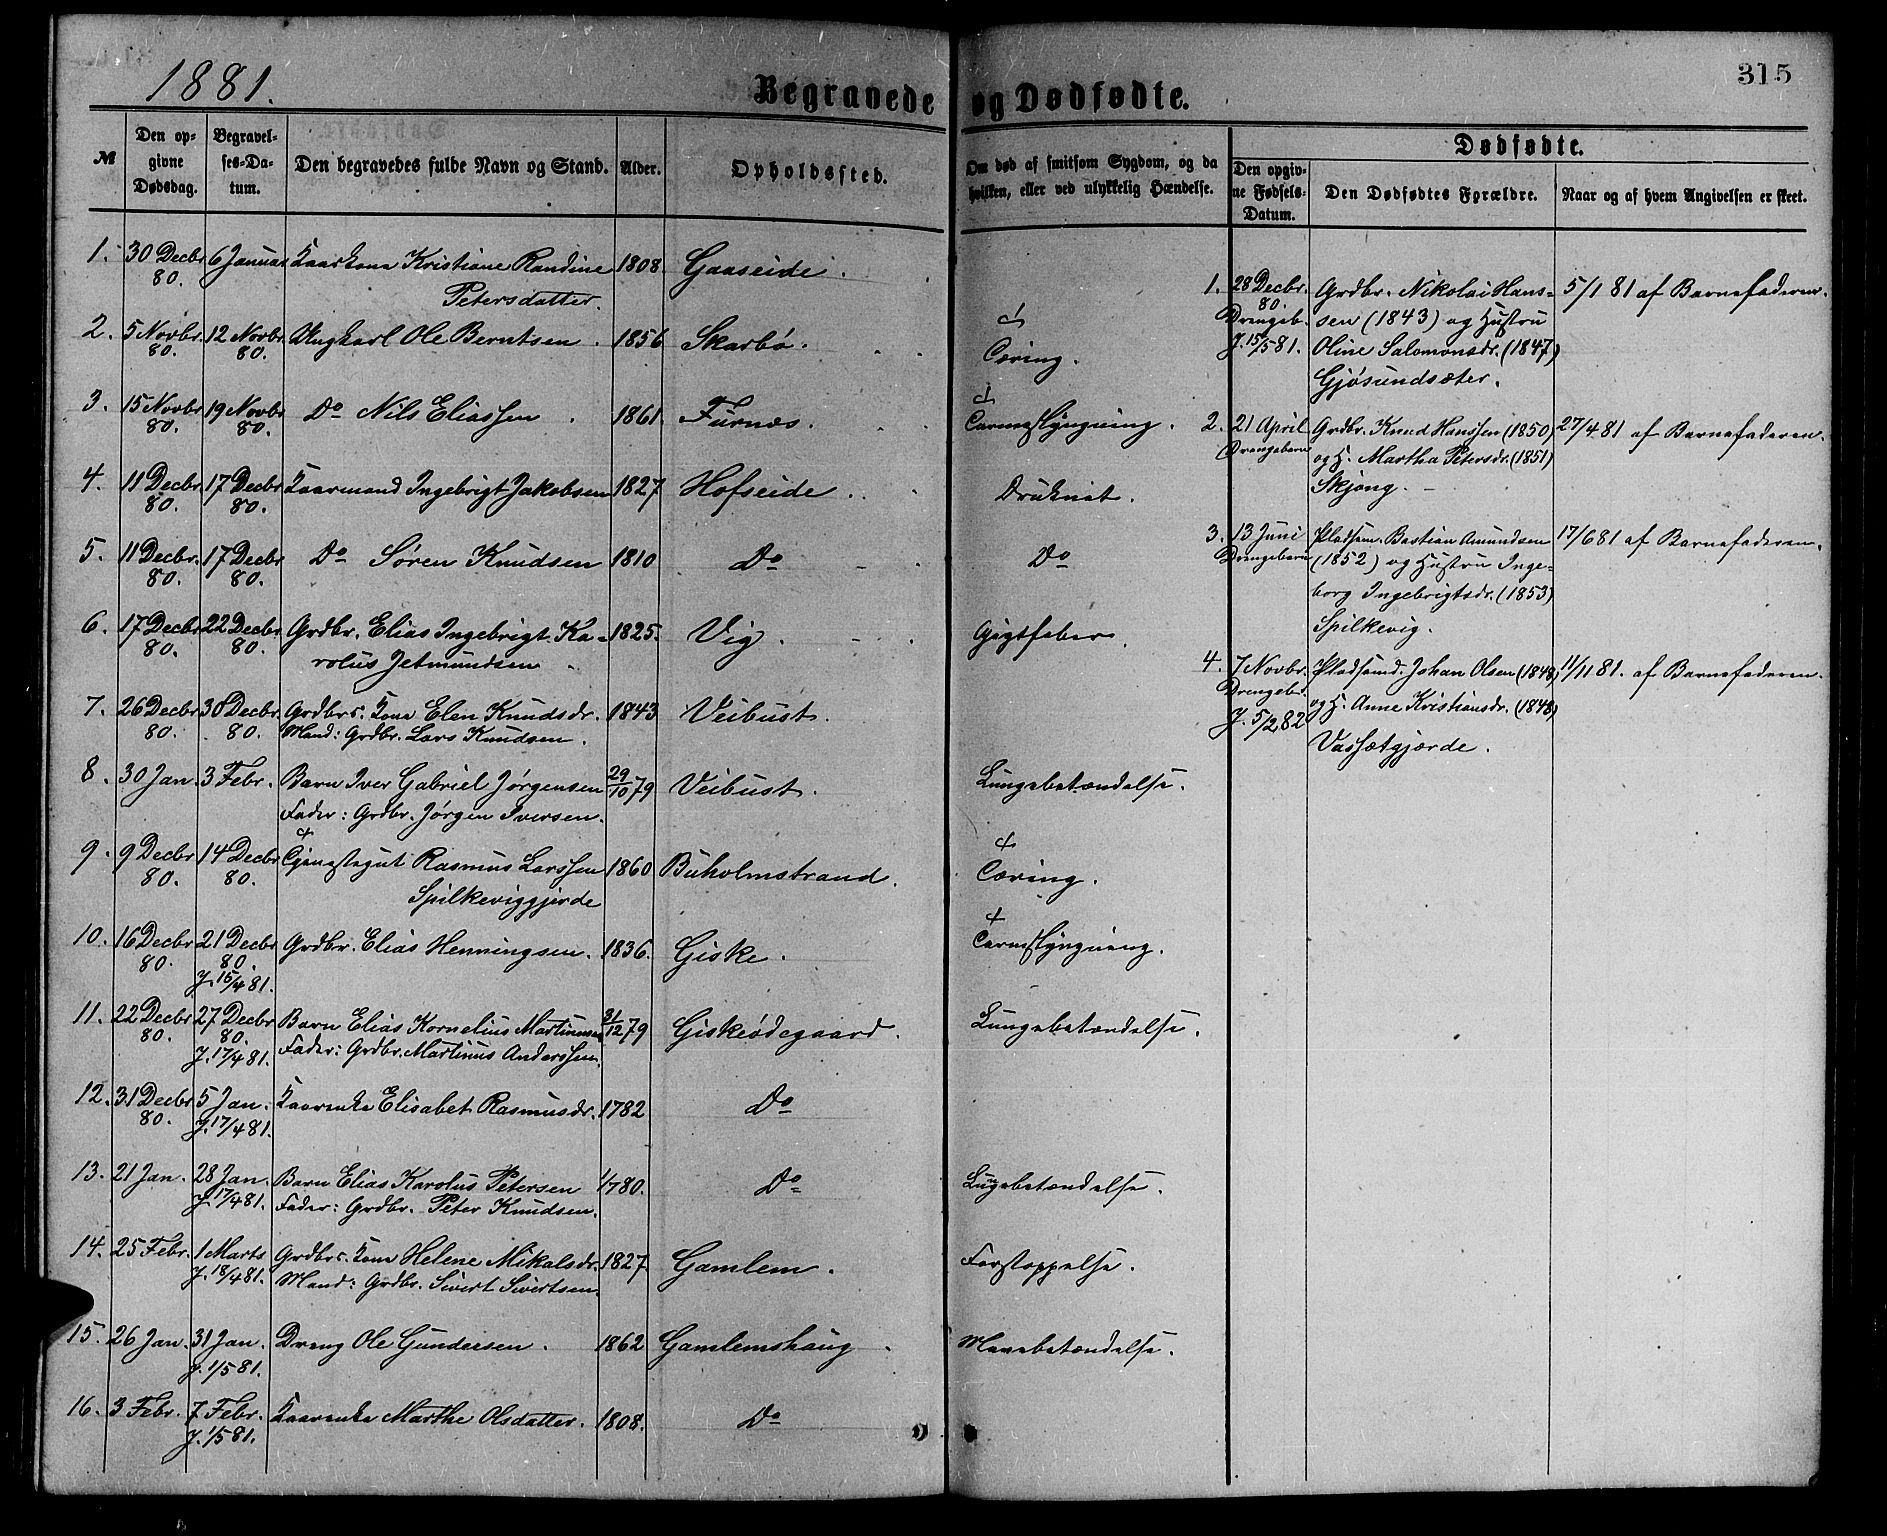 1881.
Begravede og Dødfødte.
315
№
Den opgivne Dødsdag.
Begravelses-Datum.
Den begravedes fulde Navn og Stand.
Alder.
Opholdssted.
Om død af smitsom Sygdom, og da hvilken, eller ved ulykkelig Hændelse.
Dødfødte.
Den opgivne Fødsels-Datum.
Den Dødfødtes Forældre.
Naar og af hvem Angivelsen er skeet.
1. 30 Decbr 80. 6 Januar Kaarkone Kristiane Randine Petersdatter. 1808. Gaaseide.
2. 5 Novbr. 80. 12 Novbr 80. Ungkarl Ole Berntsen. 1856 Skarbø. Tæring.
3. 15 Novbr 80. 19 Novbr 80. Do Nils Eliassen. 1861. Furnæs. Tarmslyngning.
4. 11 Decbr. 80. 17 Decbr 80. Kaarmand Ingebrigt Jakobsen 1827 Hofseide. Druknet.
5. 11 Decbr. 80. 17 Decbr 80. Do Søren Knudsen 1810 Do Do
6. 17 Decbr 80. 22 Decbr 80. Grdbr. Elias Ingebrigt Karolus Jetmundsen 1825. Vig. Gigtfeber.
7. 26 Decbr 80. 30 Decbr. 80. Grdbrs. Kone Elen Knudsdr. 1843 Veibust.
Mand: Grdbr. Lars Knudsen.
8. 30 Jan. 3 Febr. Barn Iver Gabriel Jørgensen 29/10 79 Veibust. Lungebetændelse.
Fader: Grdbr. Jørgen Iversen.
9. 9 Decbr 80. 14 Decbr 80. Tjenestegut Rasmus Larssen 1860 Buholmstrand. Tæring.
Spilkeviggjerde
10. 16 Decbr 80. 21 Decbr 80. J. 15/4 81. Grdbr. Elias Henningsen. 1836. Giske. Tarmslyngning.
11. 22 Decbr 80. 27 Decbr 80. J. 17/4 81. Barn Elias Kornelius Martinussen 31/12 79 Giskeødegaard. Lungebetændelse.
Fader: Grdbr. Martinus Anderssen.
12. 31 Decbr 80. 5 Jan. J. 17/4 81. Kaarenke Elisabet Rasmusdr. 1782 Do
13. 21 Jan. 28 Jan. J. 17/4 81. Barn Elias Karolus Petersen 1/7 80. Do Lungebetændelse.
Fader: Grdbr. Peter Knudsen.
14. 25 Febr. 1 Marts J. 18/4 81. Grdbrs. Kone Helene Mikalsdr. 1827. Gamlem. Forstoppelse.
Mand: Grdbr. Sivert Sivertsen.
15. 26 Jan. 31 Jan. J. 1/5 81. Dreng Ole Gundersen. 1862 Gamlemshaug. Mavebetændelse.
16. 3 Febr. 7 Febr. J. 1/5 81. Kaarenke Marthe Olsdatter. 1808. Do
1. 28 Decbr. 80. Grdbr. Nikolai Hans- 5/1 81 af Barnefaderen.
Drengeb. sen (1843) og Hustru
J. 15/5 81. Oline Salomonsdr. (1847)
Gjøsundsæter.
2. 21 April Grdbr. Knud Hanssen (1850) 27/4 81 af Barnefaderen.
Drengebarn og H. Martha Petersdr. (1851)
Skjong.
3. 13 Juni Pladsm. Bastian Amundsen 17/6 81 af Barnefaderen.
Drengebarn (1852) og Hustru Inge-
borg Ingebrigtsdr. (1853)
Spilkevig.
4. 7 Novbr. Pladsmd. Johan Olsen (1848) 11/11 81. af Barnefaderen.
Drengebd. og H. Anne Kristiansdr. (1848)
J. 5/2 82 Vassætgjerde.